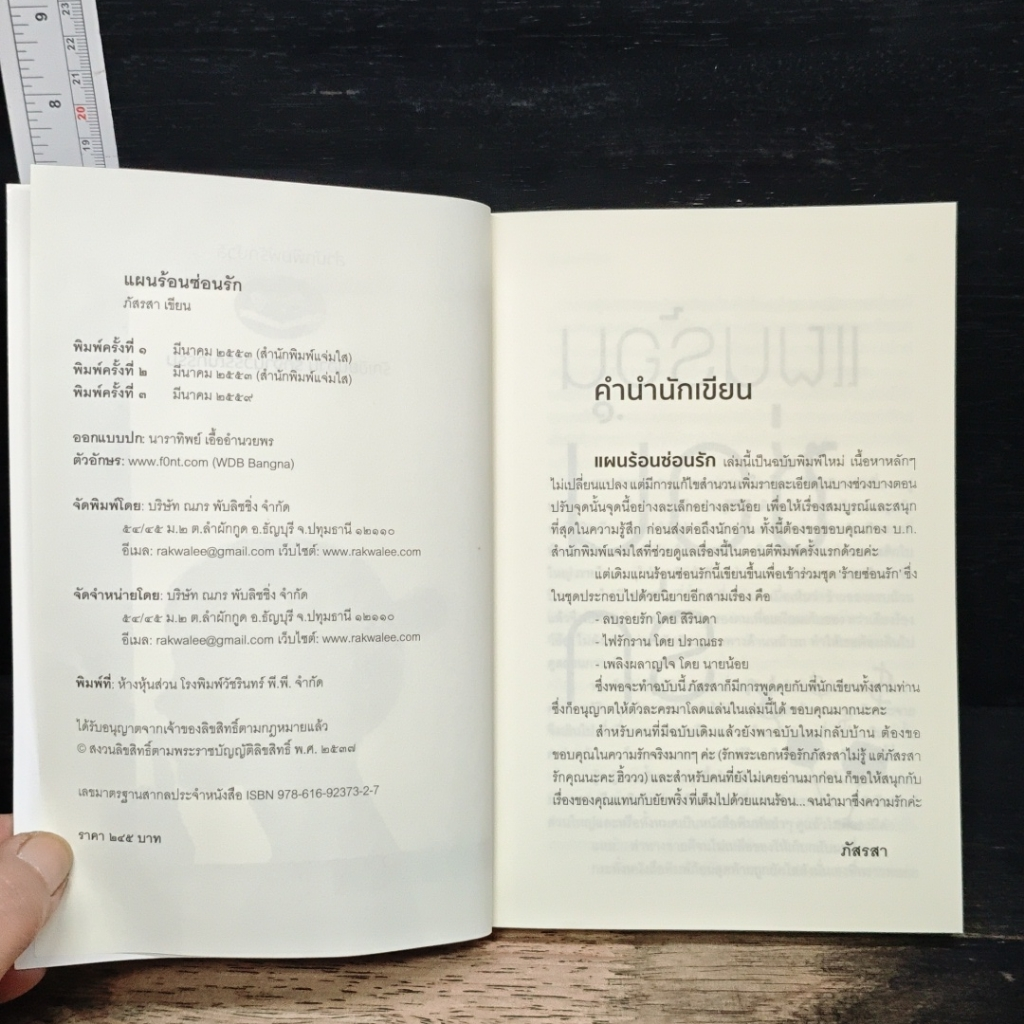 9
8
23
22
21
20
19
แผนร้อนซ่อนรัก
ภัสรสา เขียน
พิมพ์ครั้งที่ ๑ มีนาคม ๒๕๕๓ (สำนักพิมพ์แจ่มใส)
พิมพ์ครั้งที่ ๒ มีนาคม ๒๕๕๓ (สำนักพิมพ์แจ่มใส)
พิมพ์ครั้งที่ ๓ มีนาคม ๒๕๕๙
ออกแบบปก: นาราทิพย์ เอื้ออำนวยพร
ตัวอักษร: www.f0nt.com (WDB Bangna)
จัดพิมพ์โดย: บริษัท ณภร พับลิชชิ่ง จำกัด
๕๔/๔๕ ม.๒ ต.ลำผักกูด อ.ธัญบุรี จ.ปทุมธานี ๑๒๑๑๐
อีเมล: rakwalee@gmail.com เว็บไซต์: www.rakwalee.com
จัดจำหน่ายโดย: บริษัท ณภร พับลิชชิ่ง จำกัด
๕๔/๔๕ ม.๒ ต.ลำผักกูด อ.ธัญบุรี จ.ปทุมธานี ๑๒๑๑๐
อีเมล: rakwalee@gmail.com เว็บไซต์: www.rakwalee.com
พิมพ์ที่: ห้างหุ้นส่วน โรงพิมพ์วัชรินทร์ พี.พี. จำกัด
ได้รับอนุญาตจากเจ้าของลิขสิทธิ์ตามกฎหมายแล้ว
© สงวนลิขสิทธิ์ตามพระราชบัญญัติลิขสิทธิ์ พ.ศ. ๒๕๓๗
เลขมาตรฐานสากลประจำหนังสือ ISBN 978-616-92373-2-7
ราคา ๒๔๕ บาท
คำนำนักเขียน
แผนร้อนซ่อนรัก เล่มนี้เป็นฉบับพิมพ์ใหม่ เนื้อหาหลักๆ
ไม่เปลี่ยนแปลง แต่มีการแก้ไขสำนวน เพิ่มรายละเอียดในบางช่วงบางตอน
ปรับจุดนั้นจุดนี้อย่างละเล็กอย่างละน้อย เพื่อให้เรื่องสมบูรณ์และสนุก
ที่สุดในความรู้สึก ก่อนส่งต่อถึงนักอ่าน ทั้งนี้ต้องขอขอบคุณกอง บ.ก.
สำนักพิมพ์แจ่มใสที่ช่วยดูแลเรื่องนี้ในตอนตีพิมพ์ครั้งแรกด้วยค่ะ
แต่เดิมแผนร้อนซ่อนรักนี้เขียนขึ้นเพื่อเข้าร่วมชุด ‘ร้ายซ่อนรัก’ ซึ่ง
ในชุดประกอบไปด้วยนิยายอีกสามเรื่อง คือ
- ลบรอยรัก โดย สิรินดา
- ไฟรักราน โดย ปราณธร
- เพลิงผลาญใจ โดย นายน้อย
ซึ่งพอจะทำฉบับนี้ ภัสรสาก็มีการพูดคุยกับพี่นักเขียนทั้งสามท่าน
ซึ่งก็อนุญาตให้ตัวละครมาโลดแล่นในเล่มนี้ได้ ขอบคุณมากนะคะ
สำหรับคนที่มีฉบับเดิมแล้วยังพาฉบับใหม่กลับบ้าน ต้องขอ
ขอบคุณในความรักจริงมากๆ ค่ะ (รักพระเอกหรือรักภัสรสาไม่รู้ แต่ภัสรสา
รักคุณนะคะ ฮิ้ววว) และสำหรับคนที่ยังไม่เคยอ่านมาก่อน ก็ขอให้สนุกกับ
เรื่องของคุณแทนกับยัยพริ้ง ที่เต็มไปด้วยแผนร้อน...จนนำมาซึ่งความรักค่ะ
ภัสรสา